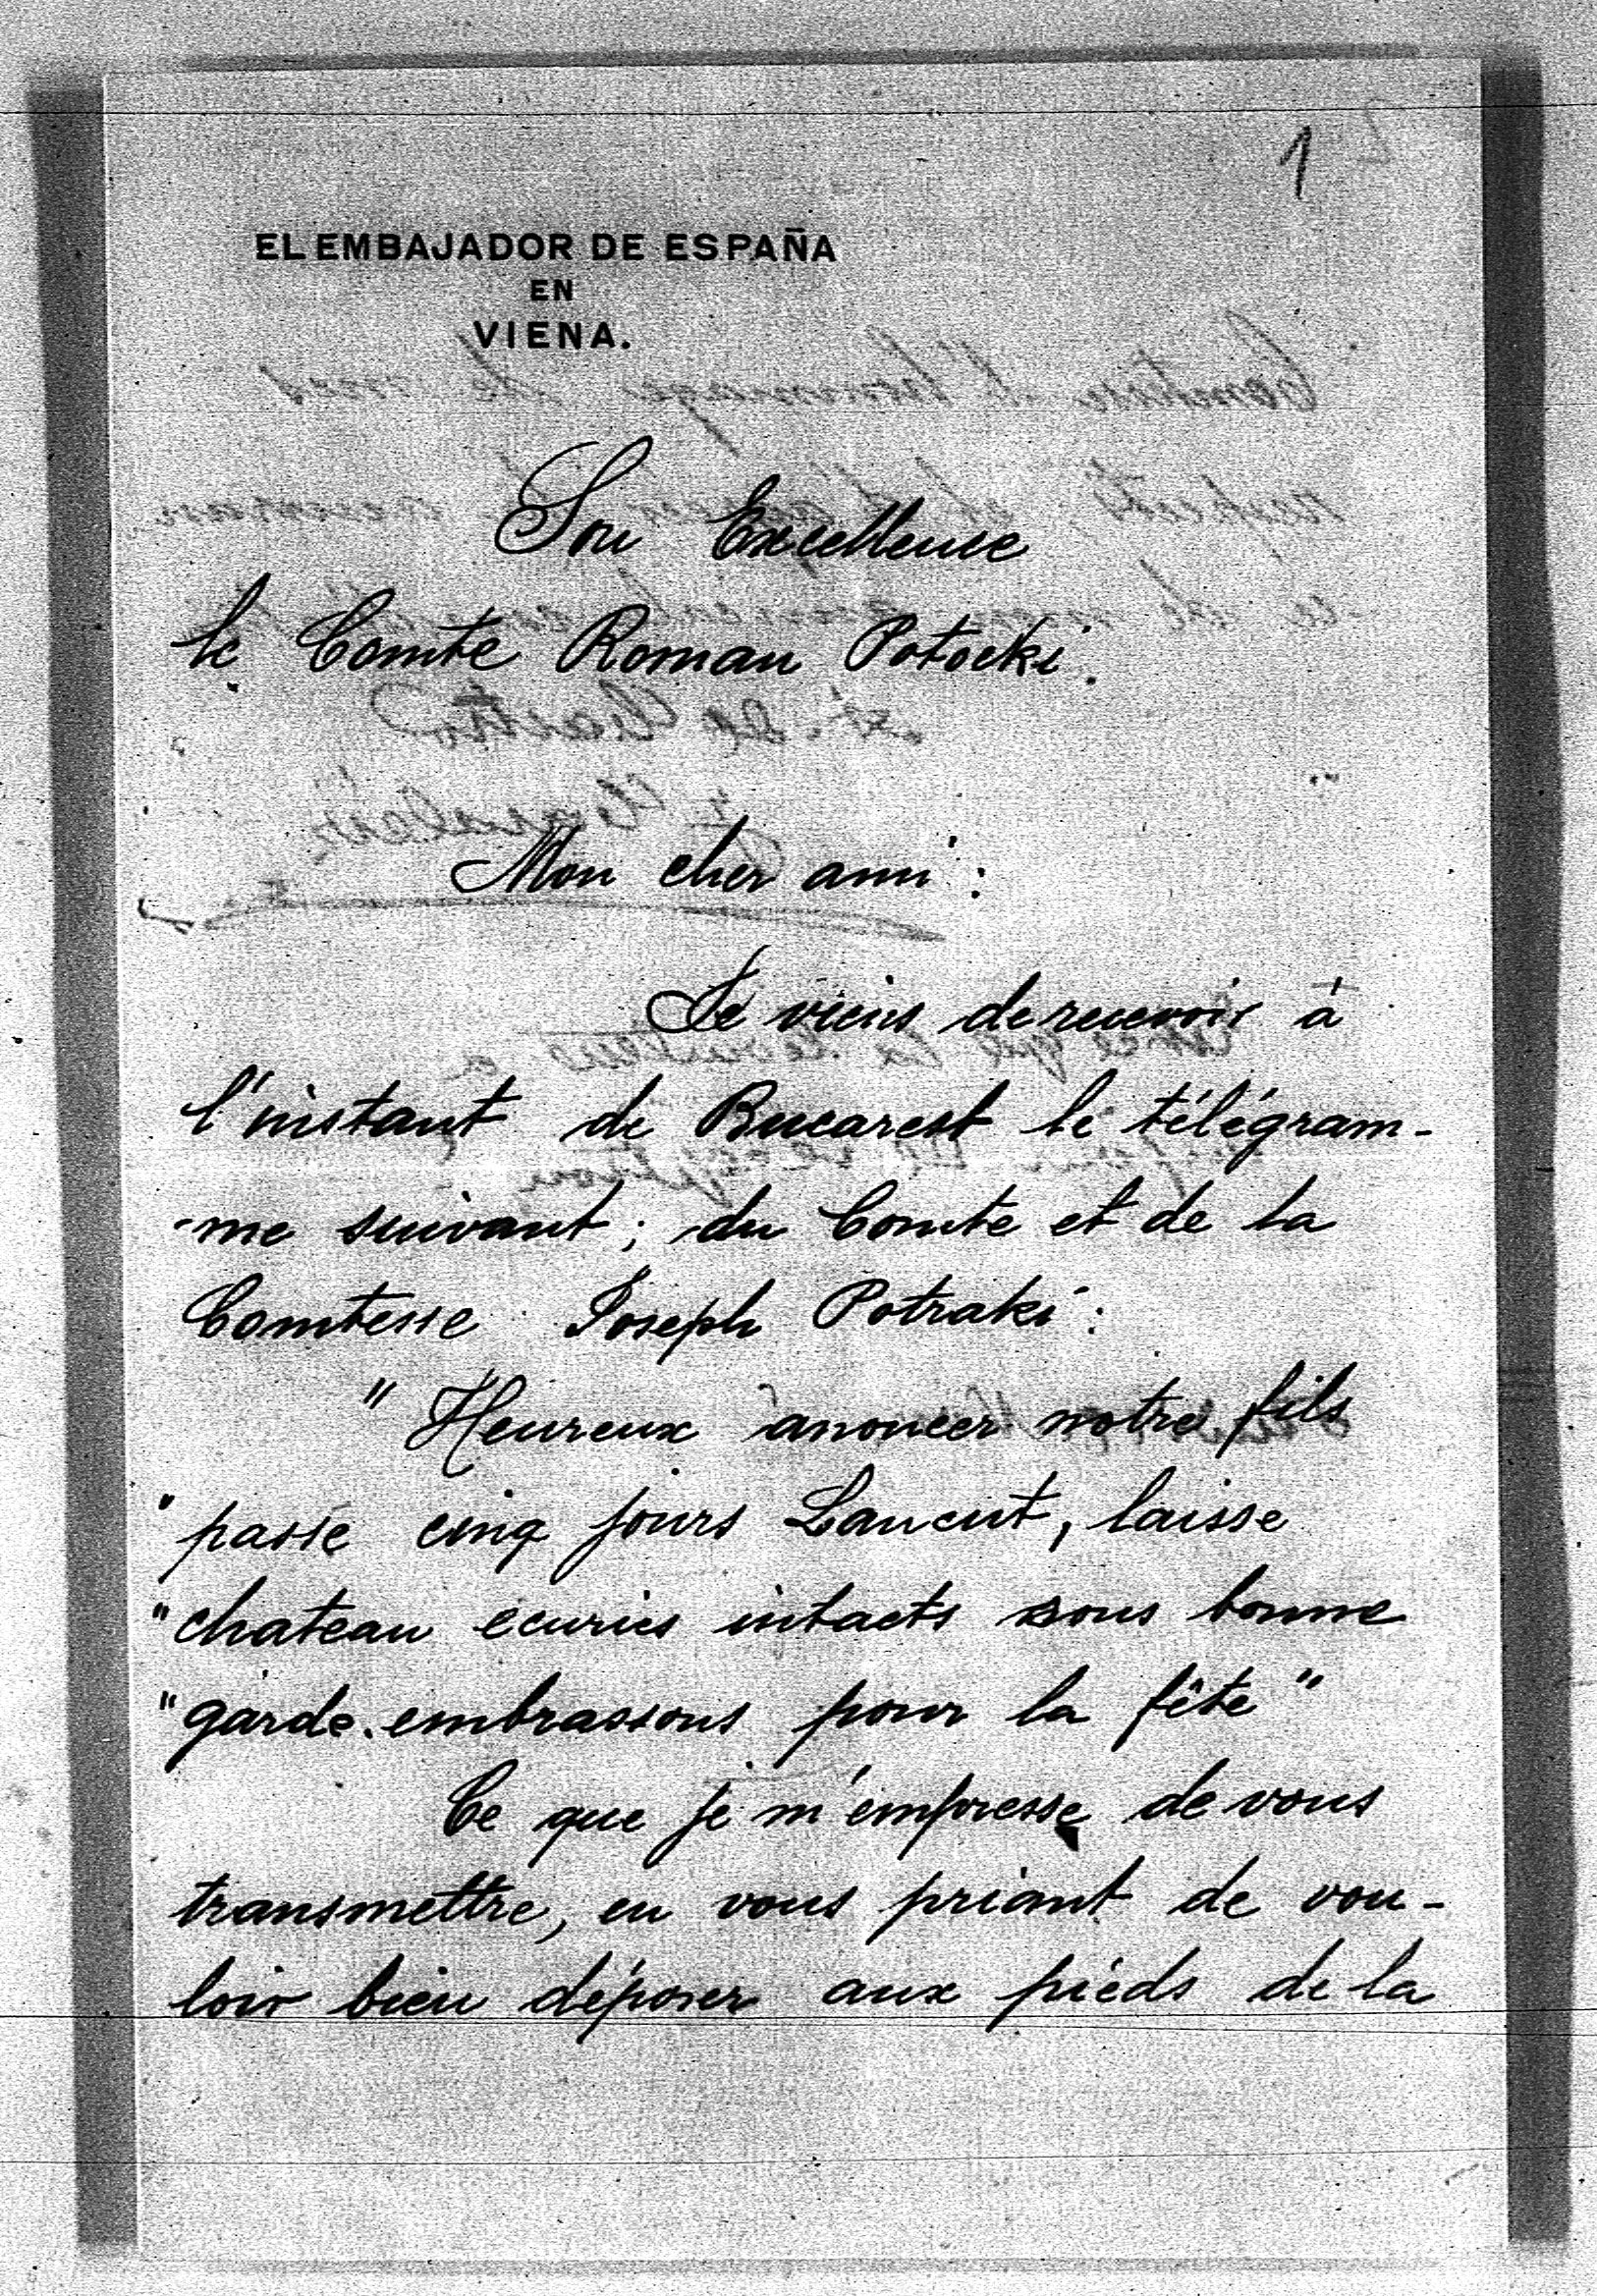 1
EL EMBAJADOR DE ESPAÑA
EN
VIENA.
Son Excellence
le Comte Roman Potocki.
Mon cher ami :
Je viens de recevoir à
l'instant de Bucarest le télégram-
-me suivant; du Comte et de la
Comtesse Joseph Potraki :
" Heureux anoncer notre fils
" passé cinq jours Lancut, laisse
" chateau ecuries intacts sous bonne
" garde. embrassons pour la fête "
Ce que je m'empresse de vous
transmettre, en vous priant de vou-
loir bien déposer aux pieds de la